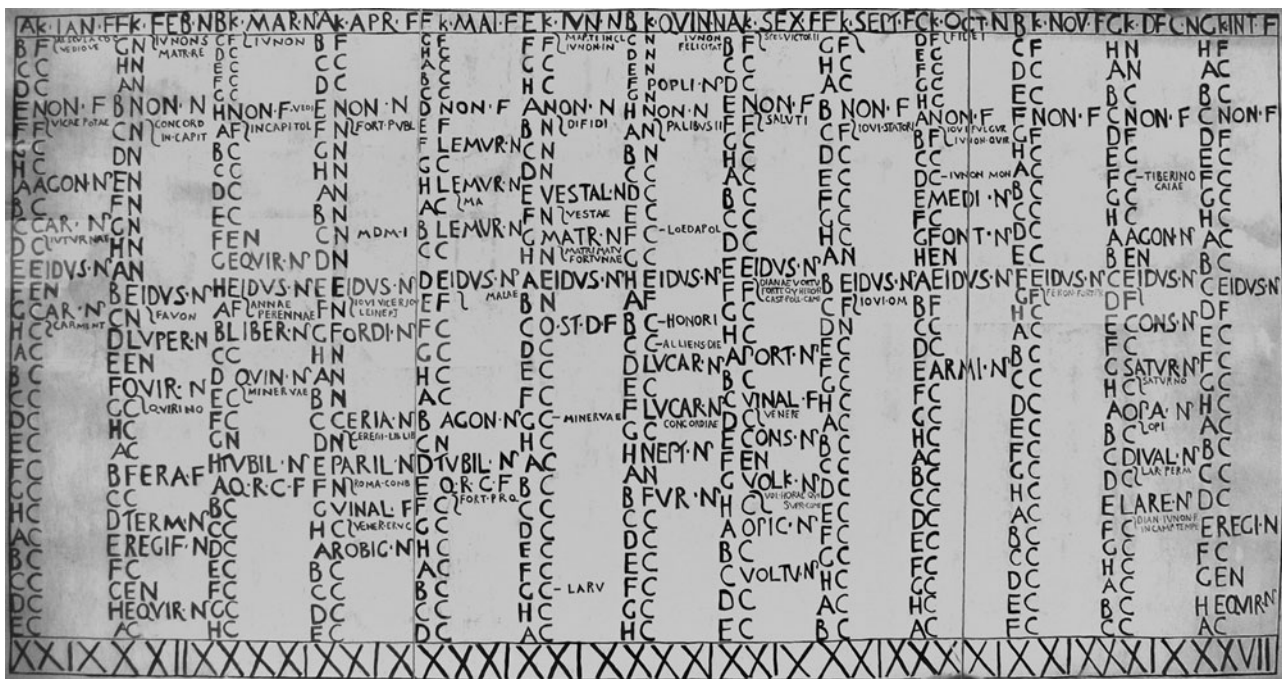 A·K·IAN·F F·K·FEB·N B K·MAR·N A K·APR·F F K·MAI·F E K·IVN·N B K·QVIN·N A K·SEX·F F K·SEPT·F C K·OCT·N B·K·NOV·F G K·DEC·N G K·INT·F
B F
C C
D C
E NON·F
F F VICAE POTAE
G C
H C
A AGON·N
B C
C CAR·N
D C IVTVRNAE
E EIDVS·N
F EN
G CAR·N
H C CARMENT
A C
B C
C C
D C
E C
F C
G C
H C
A C
B C
C C
D C
E C
G N IVNON S
MATR·RE
H N
A N
B NON·N
C N CONCORD
IN·CAPIT
D N
E N
F N
G N
H N
A N
B EIDVS·N
C N FAVON
D LVPER·N
E EN
F QVIR·N
G C QVIRINO
H C
A C
B FERA·F
C C
D TERM·N
E REGIF·N
F C
C EN
H EQVIR·N
A C
C F IVNON
D C
E C
F C
G C
H NON·F VEDI
A F IN CAPITOL
B C
C C
D C
E C
F EN
G EQVIR·N
H EIDVS·N
A F ANNAE
PERENNAE
B LIBER·N
C C
D QVIN·N
E C MINERVAE
F C
G N
H TVBIL·N
A Q·R·C·F
B C
C C
D C
E C
F C
G C
H C
B F
C C
D C
E NON·N
F N FORT·PVBL
G N
H N
A N
B N
C N MDM·I
D N
E EIDVS·N
F N
G FORDI·N
H N
A N
B N
C CERIA·N
D N CERERI·LIB·LIB
E PARIL·N
F N ROMA·COND
G VINAL·F
H C VENER·ERVC
A ROBIG·N
B C
C C
D C
E C
G F
H C
A C
B C
C C
D NON·F
E F
F LEMVR·N
G C
H LEMVR·N
A C MA
B LEMVR·N
C C
D EIDVS·N
E F MAIAE
F C
G C
H C
A C
B AGON·N
C N
D TVBIL·N
E Q·R·C·F
F C FORT·P·R·Q
G C
H C
A C
B C
C C
D C
F F MARTI IN CL
IVNON·IN
G C
H C
A NON·N
B N DI FIDI
C N
D N
E VESTAL·N
F N VESTAE
G MATR·N
H N MATRI MATV
FORTVNAE
A EIDVS·N
B N
C Q·ST·D·F
D C
E C
F C
G C MINERVAE
H C
A C
B C
C C
D C
E C
F C
G C LARV
H C
A C
C N IVNON
FELICITAT
D N
E N
F POPLI·N
G C
H NON·N
A N PALIBVS II
B N
C C
D C
E C
F C LOEDAPOL
G C
H EIDVS·N
A F
B C HONORI
C C ALLIENS·DIE
D LVCAR·N
E C
F LVCAR·N
CONCORDIAE
G C
H NEPT·N
A N
B FVR·N
C C
D C
E C
F C
G C
H C
B F SPEI VICTOR II
C C
D C
E NON·F
F F SALVTI
G C
H C
A C
B C
C C
D C
E EIDVS·N
DIANAE VORTV
F C
G C
H C
A PORT·N
B C
C VINAL·F
D C VENERE
E CONS·N
F EN
G VOLK·N
H C
A OPIC·N
B C
C VOLTV·N
D C
E C
G F
H C
A C
B NON·F
C C IOVI STATORI
D C
E C
F C
G C
H C
A N
B EIDVS·N
C F IOVI·OM
D N
E C
F C
G C
H C
A C
B C
C C
D C
E C
F C
G C
H C
A C
B C
D F FIDEI
E C
F C
G C
H C
A NON·F
B F IOVI FVLGVR
IVNON·QVIR
C C
D C IVNON MON
E MEDI·N
F C
G FONT·N
H EN
A EIDVS·N
B F
C C
D C
E ARMI·N
F C
G C
H C
A C
B C
C C
D C
E C
F C
G C
H C
A C
C F
D C
E C
F NON·F
G F
H C
A C
B C
C C
D C
E C
F EIDVS·N
G F
H C
A C
B C
C C
D C
E C
F C
G C
H C
A C
B C
C C
D C
E C
F C
H N
A N
B C
C NON·F
D F
E C
F C TIBERINO
GAIAE
G C
H C
A AGON·N
B EN
C EIDVS·N
D F
E CONS·N
F C
G SATVR·N
H C SATVRNO
A OPA·N
B C OPI
C DIVAL·N
D C LAR·PERM
E LARE·N
F C DIAN·IVNON·R
IN CAMP TEMPE
G C
H C
A C
B C
C C
H F
A C
B C
C NON·F
D F
E C
F C
G C
H C
A C
B C
C EIDVS·N
D F
E C
F C
G C
H C
A C
B C
C C
D C
E REGI·N
F C
G EN
H EQVIR·N
A C
XXIX XXVIII XXXI XXIX XXXI XXIX XXXI XXIX XXIX XXXI XXIX XXIX XXVII